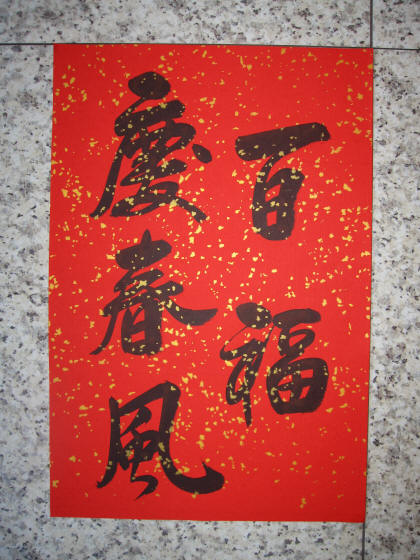 百福
慶春風